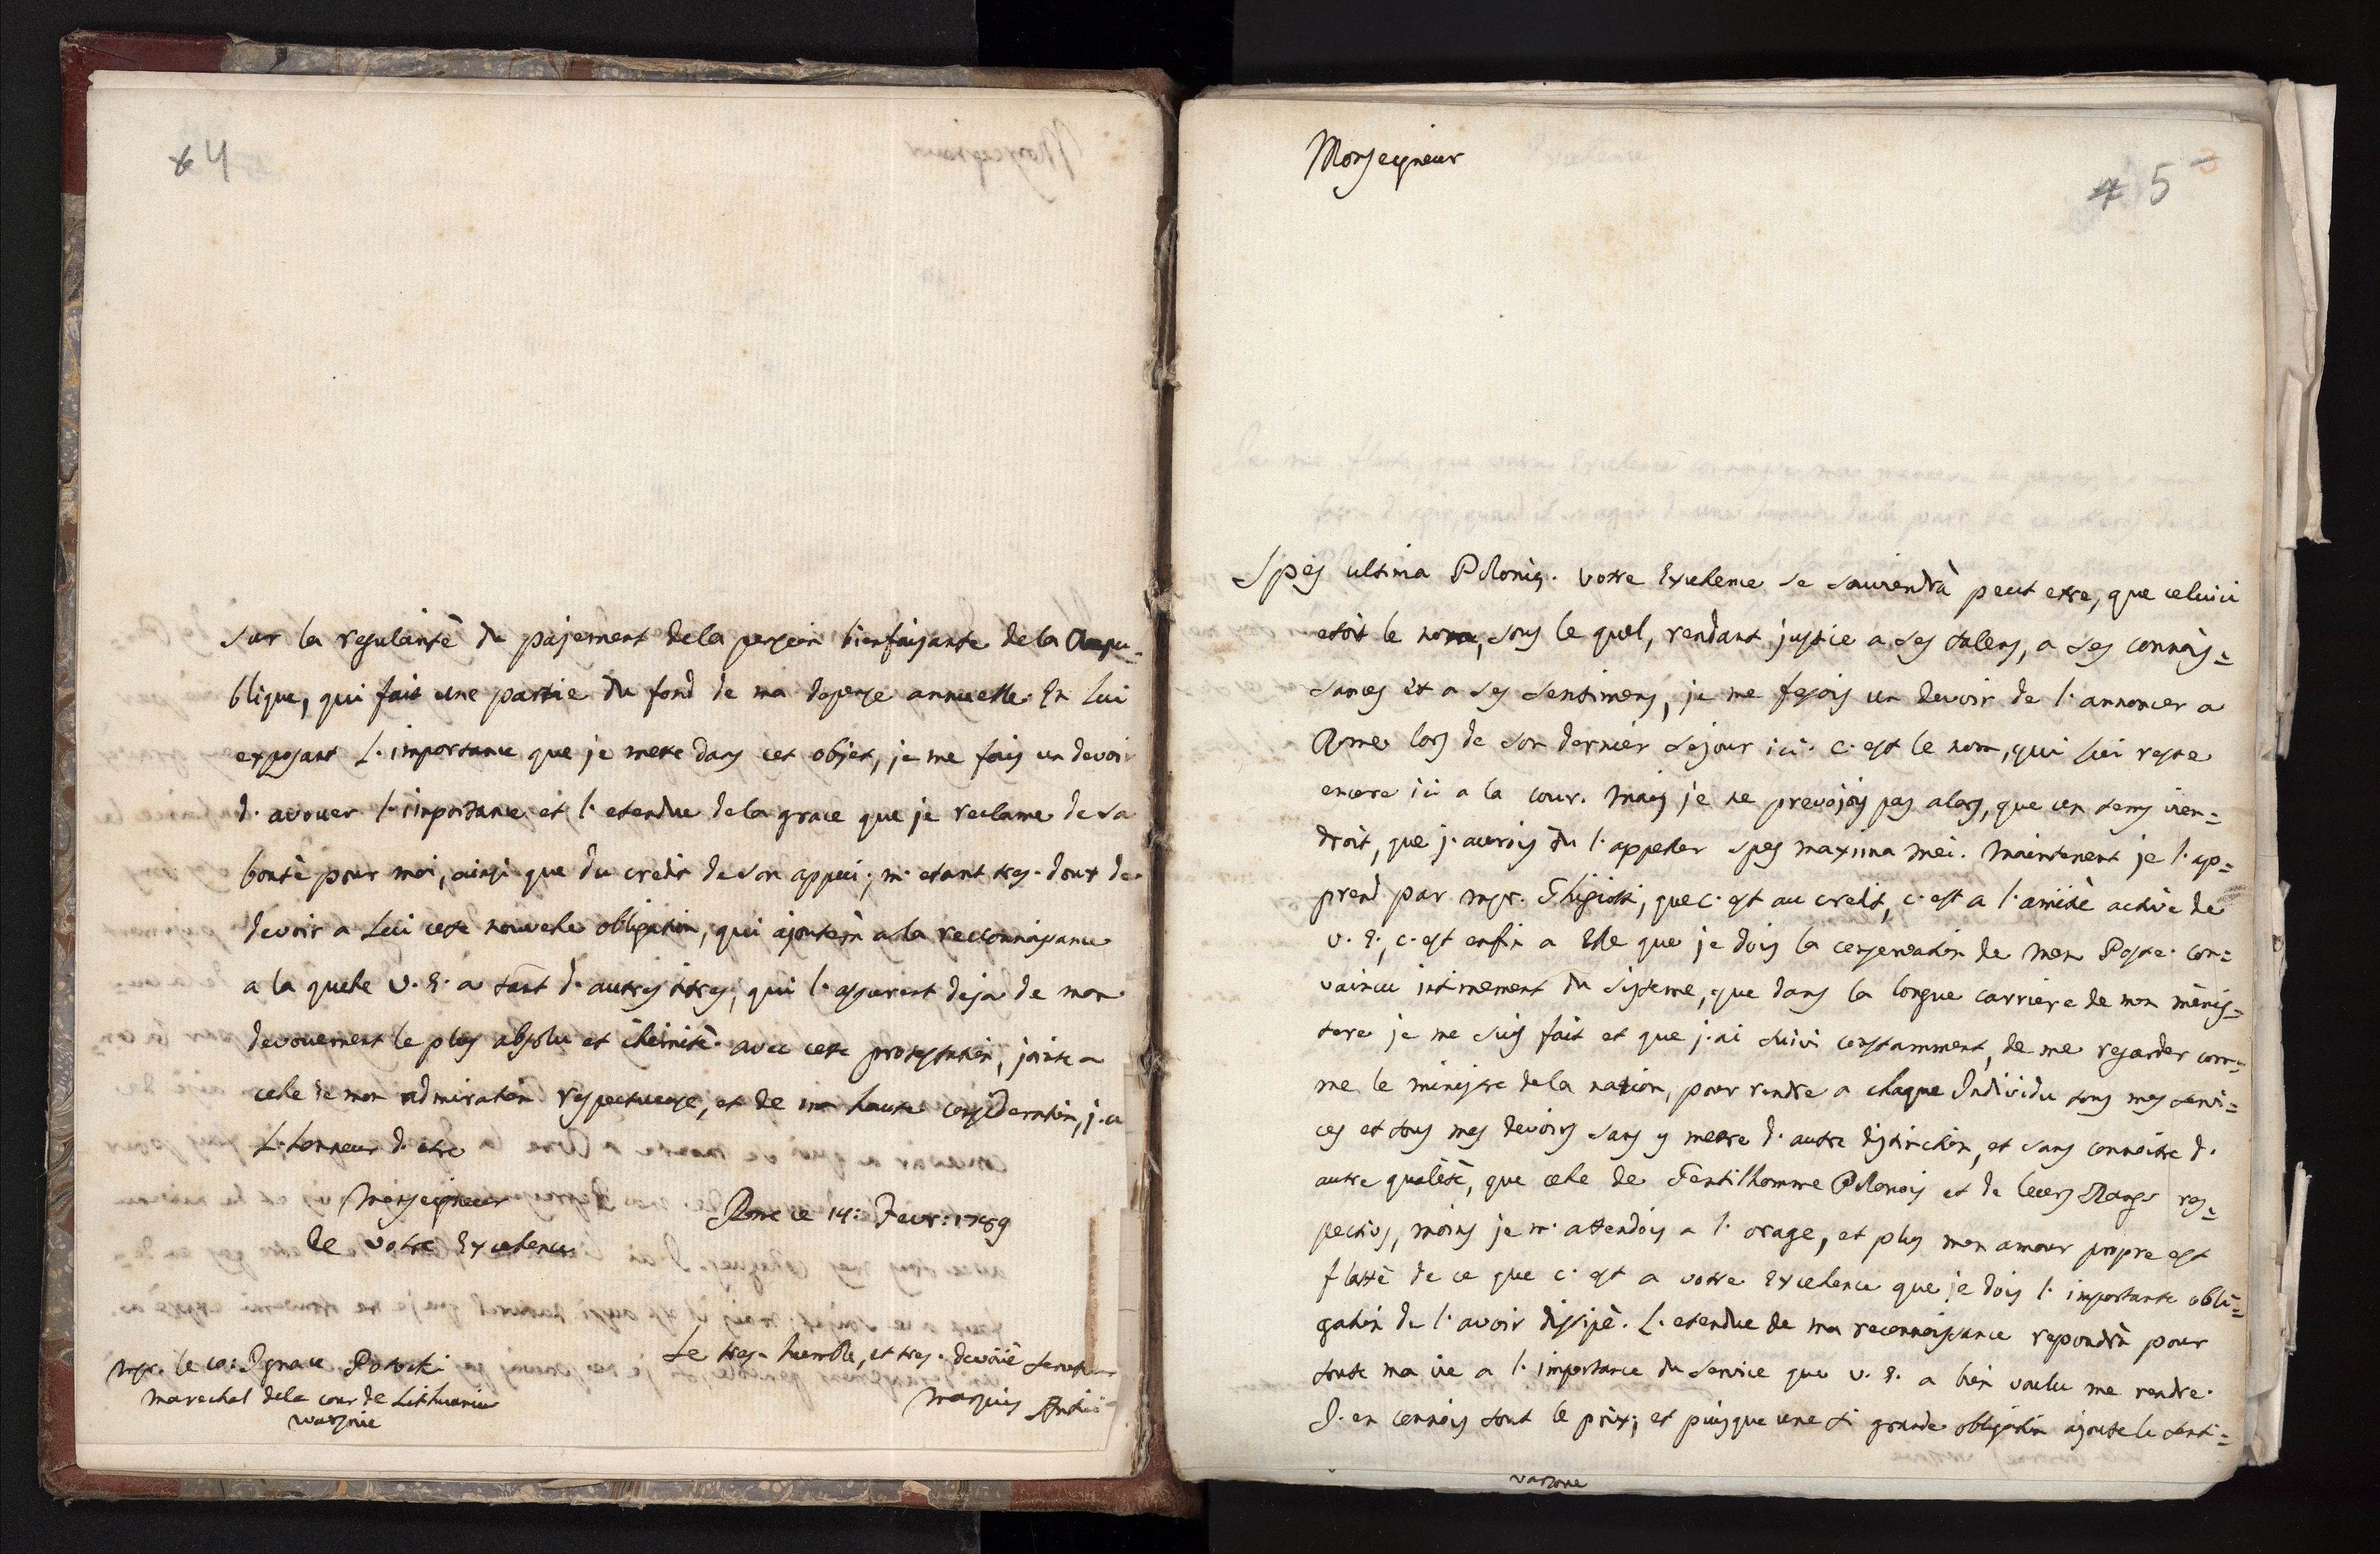 4
sur la regularitè du pajement dela pension bienfaisante dela Repu-
blique, qui fait une partie du fond de ma depense annuelle. En Lui
exposant L'importance que je mete dans cet objet, je me fais un devoir
d'avouer l'importance et l'etendue dela grace que je reclame de sa
bontè pour moi, ainsi que du credit de son appui; m'etant tres-doux de
devoir a Lui cete nouvele obligation, qui ajoutera a la reconnoisance
a la quele V. E. a tant d'autres titres, qui l'assurent deja de mon
devouement le plus absolu et illimitè. avec cete protestation, jointe a
cele de mon admiration respectueuse, et de ma haute consideration, j'ai
L'honneur d'etre
Monseigneur
de votre Excelence
Rome ce 14: Fevr: 1789
Le tres-humble, et tres-devouè serviteur
Marquis Antici
Mgr. le co: Ignace Potocki
Marechal dela cour de Lithuanie
Warsovie
Monseigneur
5
Spes ultima Poloniæ. Votre Excelence se souviendrà peut etre, que celuici
etoit le nom, sous le quel, rendant justice a ses talens, a ses connois=
sances et a ses sentimens, je me fesois un devoir de l'annoncer a
Rome lors de son dernier sejour ici. c'est le nom, qui lui reste
encore ici a la cour. Mais je ne prevojois pas alors, que un tems vien=
droit, que j'aurois du l'appeller spes maxima mei. Maintenent je l'ap=
prend par Mgr. Ghigiotti, que c'est au credit, c'est a l'amitiè active de
V. E., c'est enfin a Elle que je dois la conservation de mon Poste. Con=
vaincu intimement du sisteme, que dans la longue carriere de mon minis=
tere je me suis fait et que j'ai suivi constamment, de me regarder com=
me le ministre dela nation, pour rendre a chaque Individu tous mes servi=
ces et tous mes devoirs sans y metre d'autre distinction, et sans connoitre d'
autre qualitè, que cele de Gentilhomme Polonois et de leurs Rangs res=
pectivs, moins je m'attendois a l'orage, et plus mon amour propre est
flattè de ce que c'est a votre Excelence que je dois l'importante obli=
gation de l'avoir dissipè. L'etendue de ma reconnoisance repondrà pour
toute ma vie a l'importance du service que V. E. a bien voulu me rendre.
J'en connois tout le prix; et puisque une si grande obligation ajoute le senti=
varsovie